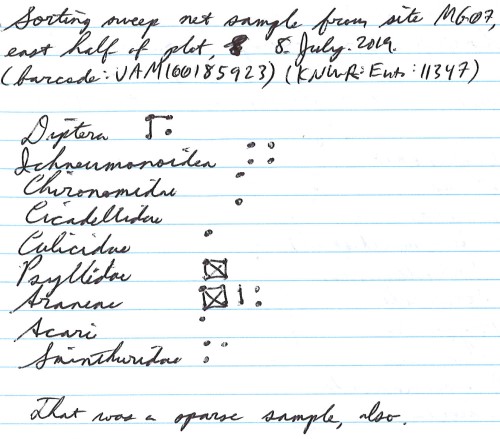 Sorting sweep net sample from site MG07,
east half of plot, 8. July. 2019.
(barcode: UAM100185923) (KNWR:Ento:11347)
Diptera
Ichneumonoidea
Chironomidae
Cicadellidae
Culicidae
Psyllidae
Araneae
Acari
Sminthuridae
That was a sparse sample, also.